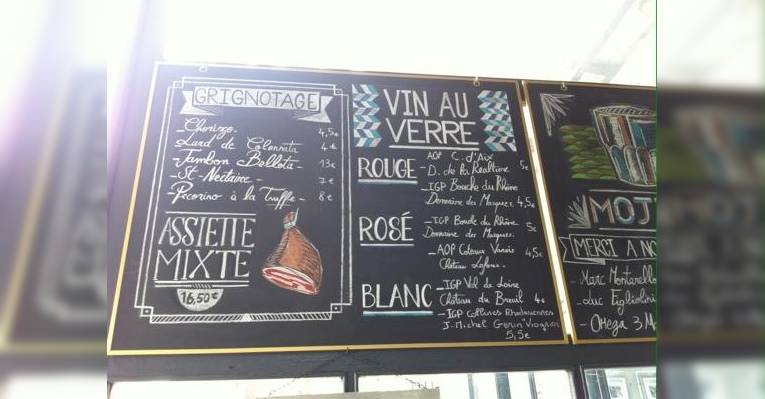 GRIGNOTAGE
- Chorizo - 4,5€
- Lard de Colonnata 4€
- Jambon Bellota - 13€
- St-Nectaire - 7€
- Pecorino à la Truffe - 8€
ASSIETTE
MIXTE
16,50€
VIN AU
VERRE
ROUGE
- AOP C. d'Aix
D. de la Realtière 5€
- IGP Bouche du Rhône
Domaine des Masques 4,5€
ROSÉ
- IGP Bouche du Rhône
Domaine des Masques. 5€
- AOP Coteaux Varois
Château Lafoux - 4,5€
BLANC
- IGP Val de Loire
Château du Breuil 4€
- IGP Collines Rhodaniennes
J-Michel Gerin "Viognier"
5,5€
MOJ
MERCI A NO
- Marc Montarello
- Luc Figliolini
- Omega 3